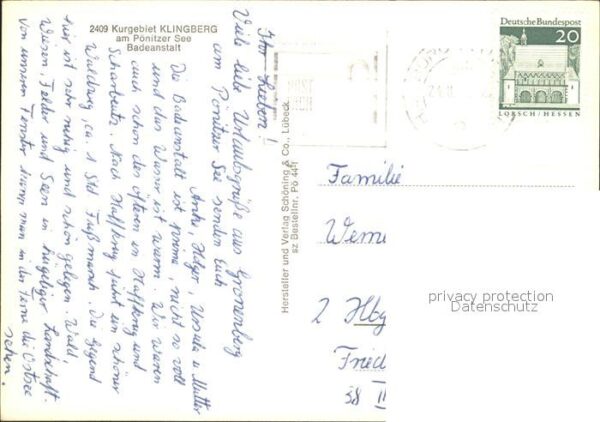 2409 Kurgebiet KLINGBERG
am Pönitzer See
Badeanstalt
Ihr Lieben!
Viele liebe Urlaubsgrüße aus Gronenberg
am Pönitzer See senden Euch
Holger, Ursula u. Mutter
Die Badeanstalt ist prima, nicht so voll
und das Wasser ist warm. Wir waren
auch schon des öfteren in Haffkrug und
Scharbeutz. Nach Haffkrug führt ein schöner
Waldweg, ca. 1 Std Fußmarsch. Die Gegend
hier ist sehr ruhig und schön gelegen. Wald,
Wiesen, Felder und Seen in hügeliger Landschaft.
Von unserem Fenster kann man in der Ferne die Ostsee
sehen.
Hersteller und Verlag Schöning & Co., Lübeck
sz Bestellnr. Pö 441
Deutsche Bundespost
20
LORSCH/HESSEN
Familie
Werne
2 Hbg
Fried
38
privacy protection
Datenschutz